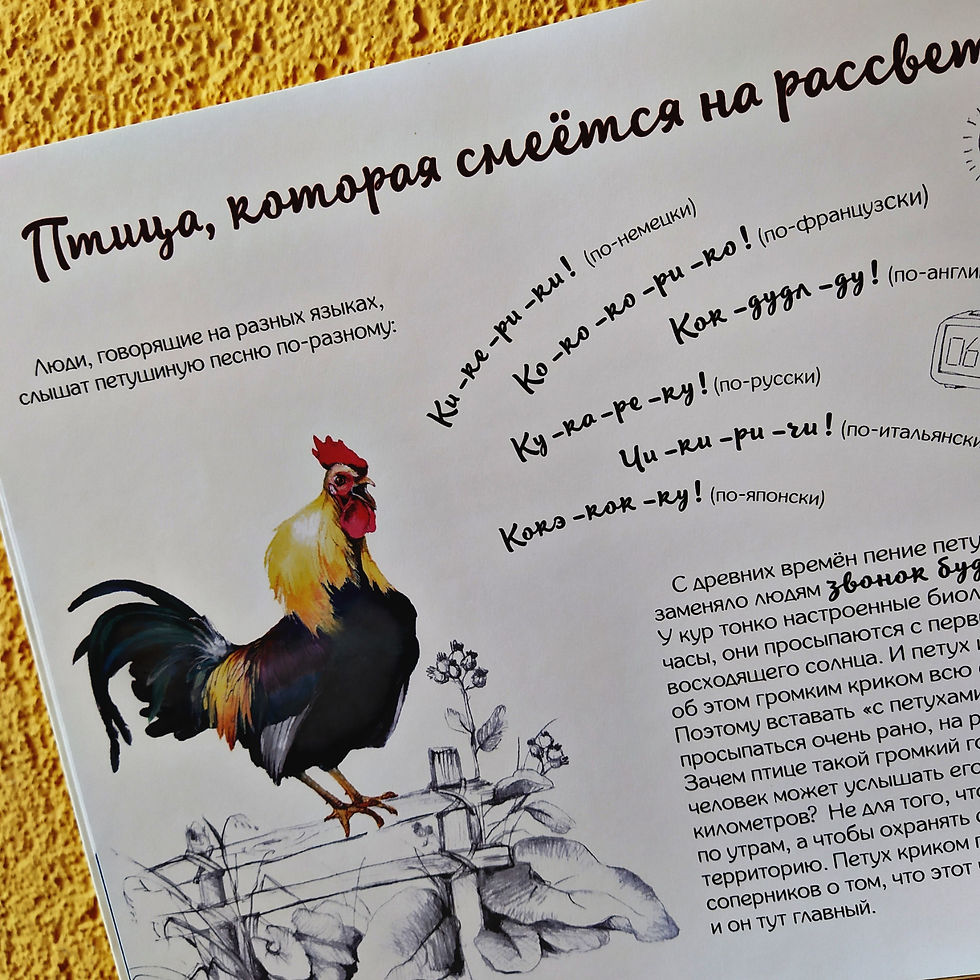 Птица, которая смеётся на рассвет
Люди, говорящие на разных языках,
слышат петушиную песню по-разному:
Ки-ке-ри-ки! (по-немецки)
Ко-ко-ко-ри-ко! (по-французски)
Кок-дудл-ду! (по-англи
Ку-ка-ре-ку! (по-русски)
Чи-ки-ри-чи! (по-итальянски
Кокэ-кок-ку! (по-японски)
06
С древних времён пение пету
заменяло людям звонок буд
У кур тонко настроенные биол
часы, они просыпаются с перв
восходящего солнца. И петух
об этом громким криком всю
Поэтому вставать «с петухами
просыпаться очень рано, на р
Зачем птице такой громкий го
человек может услышать его
километров? Не для того, что
по утрам, а чтобы охранять
территорию. Петух криком п
соперников о том, что этот
и он тут главный.